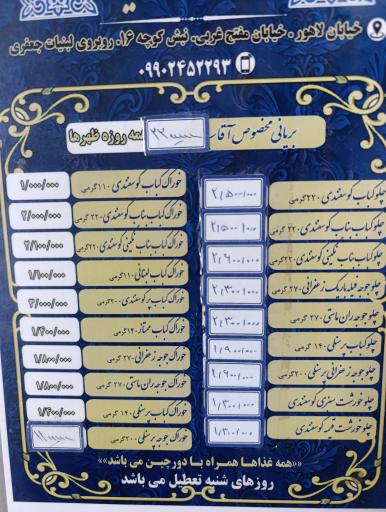 خیابان لاهور . خیابان مفتح غربی. نبش کوچه ۱۶. روبروی لبنیات جعفری
۰۹۹۰۲۴۵۲۲۹۳
بریانی مخصوص آقا همه روزه ظهرها
چلوکباب کوسفندی ۲۲۰گرمی ۲/۵۰۰/۰۰۰
چلوکباب بناب کوسفندی ۲۲۰گرمی ۲/۵۰۰/۰۰۰
چلوکباب بناب نگینی کوسفندی ۲۲۰گرمی ۲/۶۰۰/۰۰۰
چلوجوجه فیله باربیک زعفرانی ۲۷۰گرمی ۲/۳۰۰/۰۰۰
چلوجوجه ران ماستی ۲۷۰گرمی ۲/۳۰۰/۰۰۰
چلوکباب پرسلی ۱۴۰ گرمی ۱/۹۰۰/۰۰۰
چلوجوجه زعفرانی پرسلی ۲۰۰گرمی ۱/۹۰۰/۰۰۰
چلوخورشت سبزی کوسفندی ۱/۳۰۰/۰۰۰
چلوخورشت قیمه کوسفندی ۱/۳۰۰/۰۰۰
خوراک کباب کوسفندی ۱۱۰گرمی ۱/۰۰۰/۰۰۰
خوراک کباب بناب کوسفندی ۲۲۰گرمی ۲/۰۰۰/۰۰۰
خوراک کباب بناب نگینی کوسفندی ۲۲۰گرمی ۲/۱۰۰/۰۰۰
خوراک کباب لبنانی ۱۱۰گرمی ۱/۱۰۰/۰۰۰
خوراک کباب پر کوسفندی ۲۰۰گرمی ۳/۰۰۰/۰۰۰
خوراک کباب ممتاز ۱۴۰گرمی ۱/۴۰۰/۰۰۰
خوراک جوجه زعفرانی ۲۷۰گرمی ۱/۸۰۰/۰۰۰
خوراک جوجه ران ماستی ۲۷۰گرمی ۱/۸۰۰/۰۰۰
خوراک کباب پرسلی ۱۴۰ گرمی ۱/۴۰۰/۰۰۰
خوراک جوجه پرسلی ۲۰۰گرمی
««همه غذاها همراه با دورچین می باشد»»
روزهای شنبه تعطیل می باشد